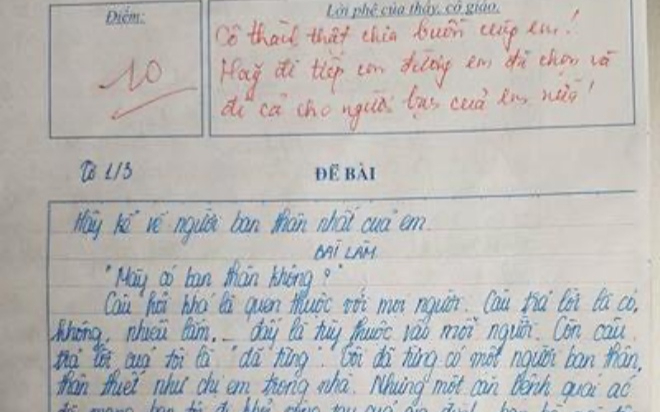 Điểm:
Lời phê của thầy, cô giáo.
10
Cô thành thật chia buồn cùng em!
Hãy đi tiếp con đường em đã chọn và
đi cả cho người bạn của em nữa!
Tờ 1/3
ĐỀ BÀI
Hãy kể về người bạn thân nhất của em.
BÀI LÀM
"Mày có bạn thân không?"
Câu hỏi khá là quen thuộc với mọi người. Câu trả lời là có,
không, nhiều lắm,... đấy là tùy thuộc vào mỗi người. Còn câu
trả lời của tôi là "đã từng". Tôi đã từng có một người bạn thân,
thân thiết như chị em trong nhà. Nhưng một căn bệnh quái ác
đã mang bạn ấy đi khỏi vòng tay của gia đình, bạn bè